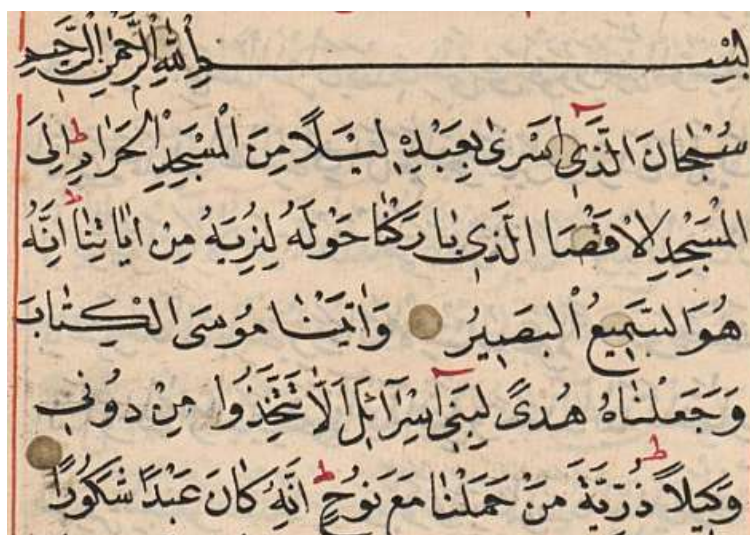 بِسْمِ اللّٰهِ الرَّحْمٰنِ الرَّحِيمِ
سُبْحَانَ الَّذِي اَسْرٰى بِعَبْدِهِ لَيْلًا مِنَ الْمَسْجِدِ الْحَرَامِ ط اِلَى
الْمَسْجِدِ الْاَقْصَا الَّذِي بَارَكْنَا حَوْلَهُ لِنُرِيَهُ مِنْ اٰيَاتِنَا ط اِنَّهُ
هُوَ السَّمِيعُ الْبَصِيرُ وَاٰتَيْنَا مُوسَى الْكِتَابَ
وَجَعَلْنَاهُ هُدًى لِبَنِي اِسْرَآئِلَ اَلَّا تَتَّخِذُوا مِنْ دُونِي
وَكِيلًا ط ذُرِّيَّةَ مَنْ حَمَلْنَا مَعَ نُوحٍ ط اِنَّهُ كَانَ عَبْدًا شَكُورًا